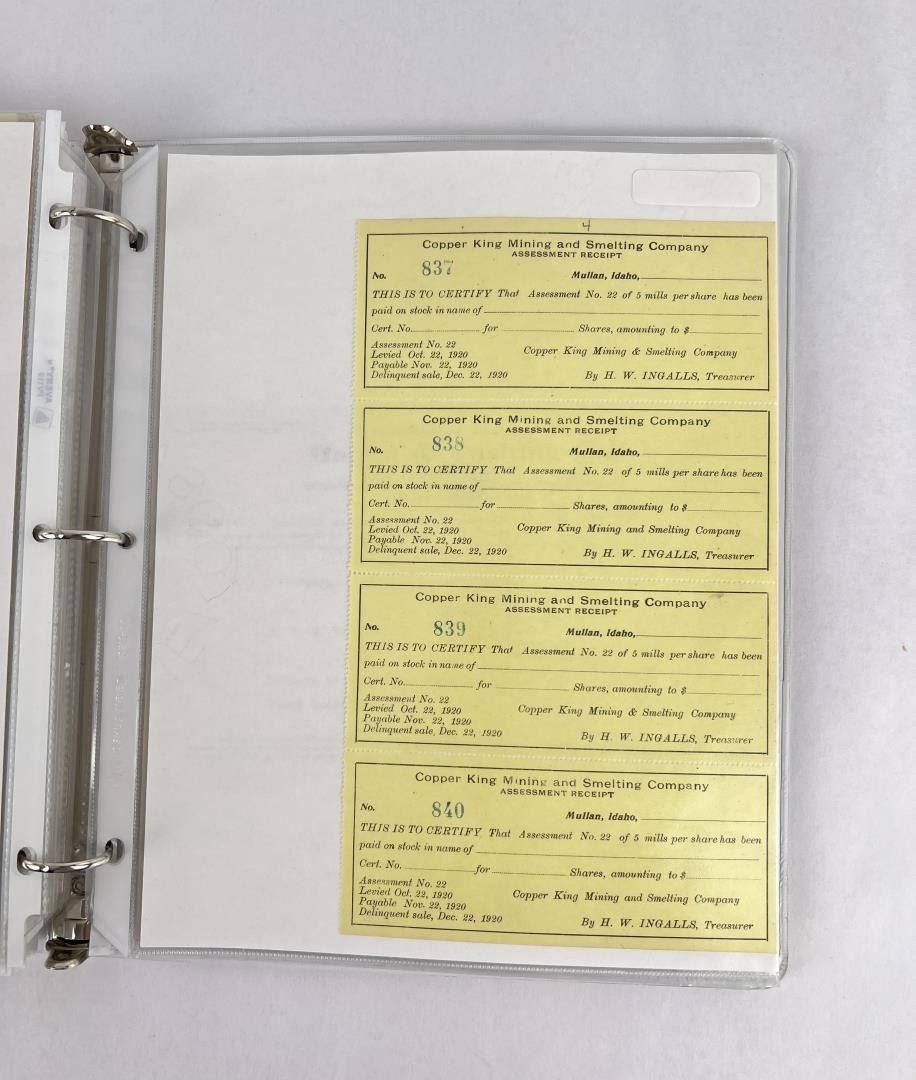 4
Copper King Mining and Smelting Company
ASSESSMENT RECEIPT
No. 837 Mullan, Idaho,
THIS IS TO CERTIFY That Assessment No. 22 of 5 mills per share has been
paid on stock in name of
Cert. No. for Shares, amounting to $
Assessment No. 22
Levied Oct. 22, 1920
Copper King Mining & Smelting Company
Payable Nov. 22, 1920
Delinquent sale, Dec. 22, 1920
By H. W. INGALLS, Treasurer
Copper King Mining and Smelting Company
ASSESSMENT RECEIPT
No. 838 Mullan, Idaho,
THIS IS TO CERTIFY That Assessment No. 22 of 5 mills per share has been
paid on stock in name of
Cert. No. for Shares, amounting to $
Assessment No. 22
Levied Oct. 22, 1920
Copper King Mining and Smelting Company
Payable Nov. 22, 1920
Delinquent sale, Dec. 22, 1920
By H. W. INGALLS, Treasurer
Copper King Mining and Smelting Company
ASSESSMENT RECEIPT
No. 839 Mullan, Idaho,
THIS IS TO CERTIFY That Assessment No. 22 of 5 mills per share has been
paid on stock in name of
Cert. No. for Shares, amounting to $
Assessment No. 22
Levied Oct. 22, 1920
Copper King Mining & Smelting Company
Payable Nov. 22, 1920
Delinquent sale, Dec. 22, 1920
By H. W. INGALLS, Treasurer
Copper King Mining and Smelting Company
ASSESSMENT RECEIPT
No. 840 Mullan, Idaho,
THIS IS TO CERTIFY That Assessment No. 22 of 5 mills per share has been
paid on stock in name of
Cert. No. for Shares, amounting to $
Assessment No. 22
Levied Oct. 22, 1920
Copper King Mining and Smelting Company
Payable Nov. 22, 1920
Delinquent sale, Dec. 22, 1920
By H. W. INGALLS, Treasurer